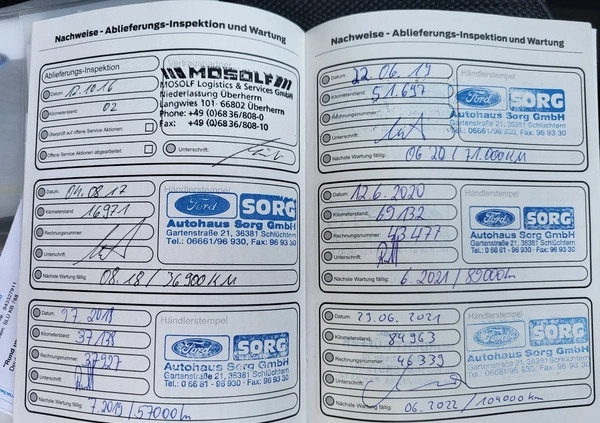 Nachweise - Ablieferungs-Inspektion und Wartung
Ablieferungs-Inspektion
Datum: 12.10.16
Kilometerstand: 02
Überprüft auf offene Service Aktionen:
Offene Service Aktionen abgearbeitet:
Vertragspartner
MOSOLF
MOSOLF Logistics & Services GmbH
Niederlassung Überherrn
Langwies 101· 66802 Überherrn
Phone: +49 (0)68 36/808-0
Fax: +49 (0)68 36/808-10
Unterschrift:
Datum: 04.08.17
Kilometerstand: 16971
Rechnungsnummer:
Unterschrift:
Nächste Wartung fällig: 08.18 / 36900 KM
Händlerstempel
Ford SORG
Autohaus Sorg GmbH
Gartenstraße 21, 36381 Schlüchtern
Tel.: 06661/96 930, Fax: 96 93 30
Datum: 9.7.2018
Kilometerstand: 37138
Rechnungsnummer: 37927
Unterschrift:
Nächste Wartung fällig: 7.2019 / 57000km
Händlerstempel
Ford SORG
Autohaus Sorg GmbH
Gartenstraße 21, 36381 Schlüchtern
Tel.: 0 66 61 - 96 930 - Fax: 96 93 30
Nachweise - Ablieferungs-Inspektion und Wartung
Datum: 22.06.19
Kilometerstand: 51.697
Rechnungsnummer:
Unterschrift:
Nächste Wartung fällig: 06 20 71.000 KM
Händlerstempel
Ford SORG
Autohaus Sorg GmbH
Gartenstraße 21, 36381 Schlüchtern
Tel.: 06661/96 930, Fax: 96 93 30
Datum: 12.6.2020
Kilometerstand: 69132
Rechnungsnummer: 43477
Unterschrift:
Nächste Wartung fällig: 6.2021 / 89000km
Händlerstempel
Ford SORG
Autohaus Sorg GmbH
Gartenstraße 21, 36381 Schlüchtern
Tel.: 06661/96 930, Fax: 96 93 30
Datum: 29.06.2021
Kilometerstand: 84963
Rechnungsnummer: 46339
Unterschrift:
Nächste Wartung fällig: 06.2022 / 104000km
Händlerstempel
Ford SORG
Autohaus Sorg GmbH
Gartenstraße 21, 36381 Schlüchtern
Tel.: 06661/96 930, Fax: 96 93 30